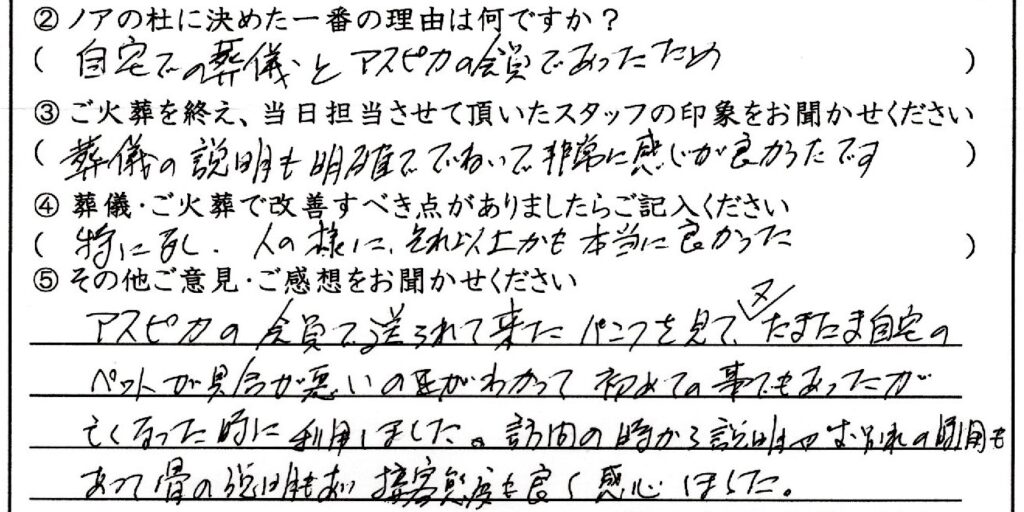 ②ノアの杜に決めた一番の理由は何ですか？
( 自宅での葬儀とアスピカの会員であったため )
③ご火葬を終え、当日担当させて頂いたスタッフの印象をお聞かせください
( 葬儀の説明も明確でていねいで非常に感じが良かったです )
④葬儀・ご火葬で改善すべき点がありましたらご記入ください
( 特に無し. 人の様に、それ以上かも本当に良かった )
⑤その他ご意見・ご感想をお聞かせください
アスピカの会員で送られて来たパンフを見て、又たまたま自宅の
ペットが具合が悪いのがわかって初めての事でもあったが
亡くなった時に利用しました。訪問の時から説明やお別れの時間も
あって骨の説明もあり接客態度も良く感心しました。